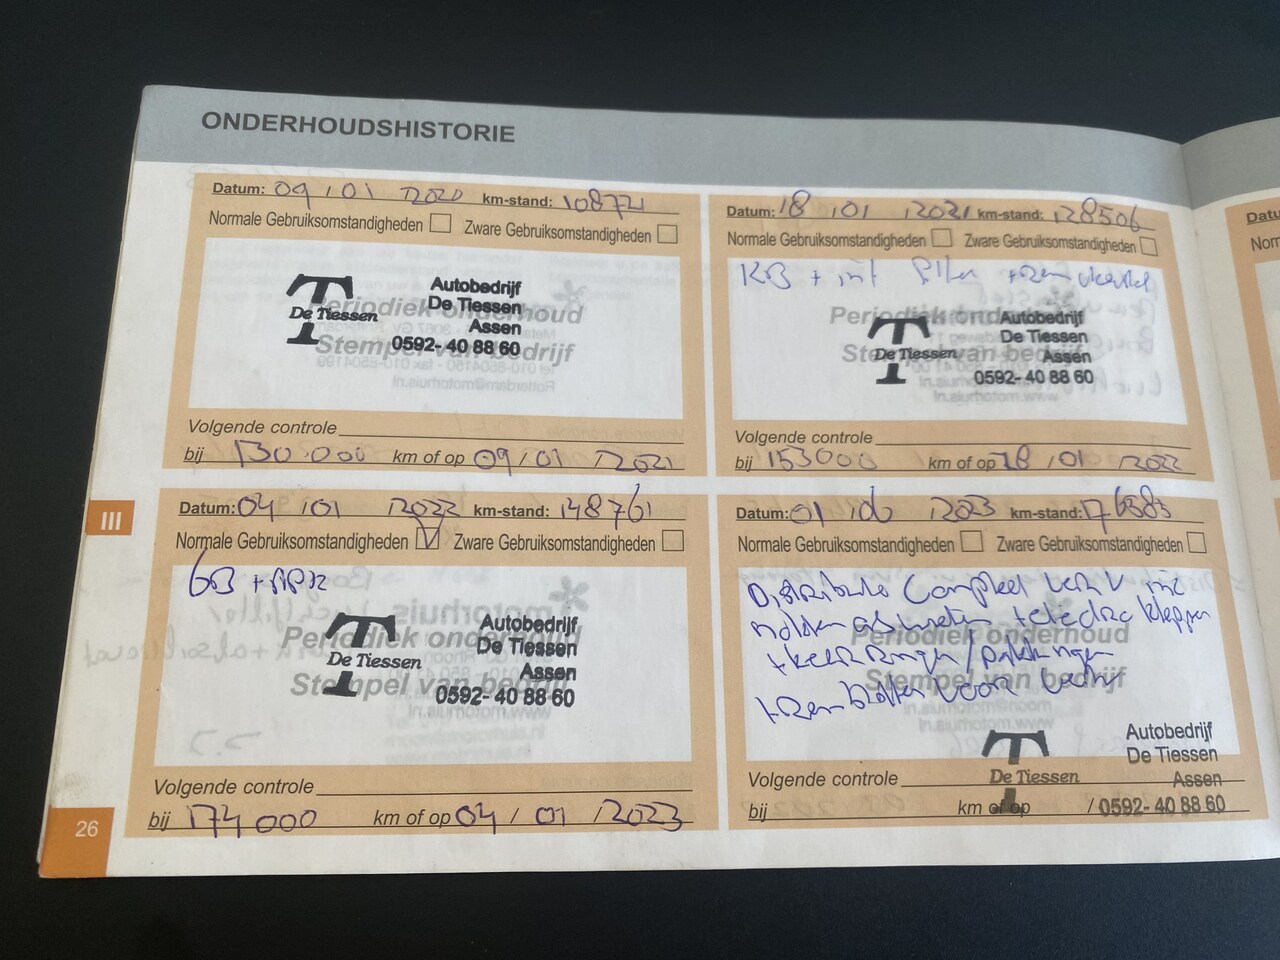 ONDERHOUDSHISTORIE
Datum: 09 / 01 / 2020 km-stand: 108721
Normale Gebruiksomstandigheden Zware Gebruiksomstandigheden
Autobedrijf
De Tiessen
Assen
0592- 40 88 60
T
De Tiessen
Periodiek onderhoud
Stempel van bedrijf
Volgende controle
bij 130.000 km of op 09 / 01 / 2021
Datum: 18 / 01 / 2021 km-stand: 128506
Normale Gebruiksomstandigheden Zware Gebruiksomstandigheden
KB + int filter + rem
Autobedrijf
De Tiessen
Assen
0592- 40 88 60
T
De Tiessen
Periodiek onderhoud
Stempel van bedrijf
Volgende controle
bij 153000 km of op 18 / 01 / 2022
III
Datum: 04 / 01 / 2022 km-stand: 148761
Normale Gebruiksomstandigheden V Zware Gebruiksomstandigheden
GB + APK
Autobedrijf
De Tiessen
Assen
0592- 40 88 60
T
De Tiessen
Periodiek onderhoud
Stempel van bedrijf
Volgende controle
bij 174000 km of op 04 / 01 / 2023
Datum: 01 / 06 / 2023 km-stand: 176383
Normale Gebruiksomstandigheden Zware Gebruiksomstandigheden
Distributie Compleet
kleppen
+ keerringen / pakkingen
+ remblokken voor
Periodiek onderhoud
Stempel van bedrijf
Autobedrijf
De Tiessen
Assen
0592- 40 88 60
T
De Tiessen
Volgende controle
bij km of op /
26
Datu
Norm